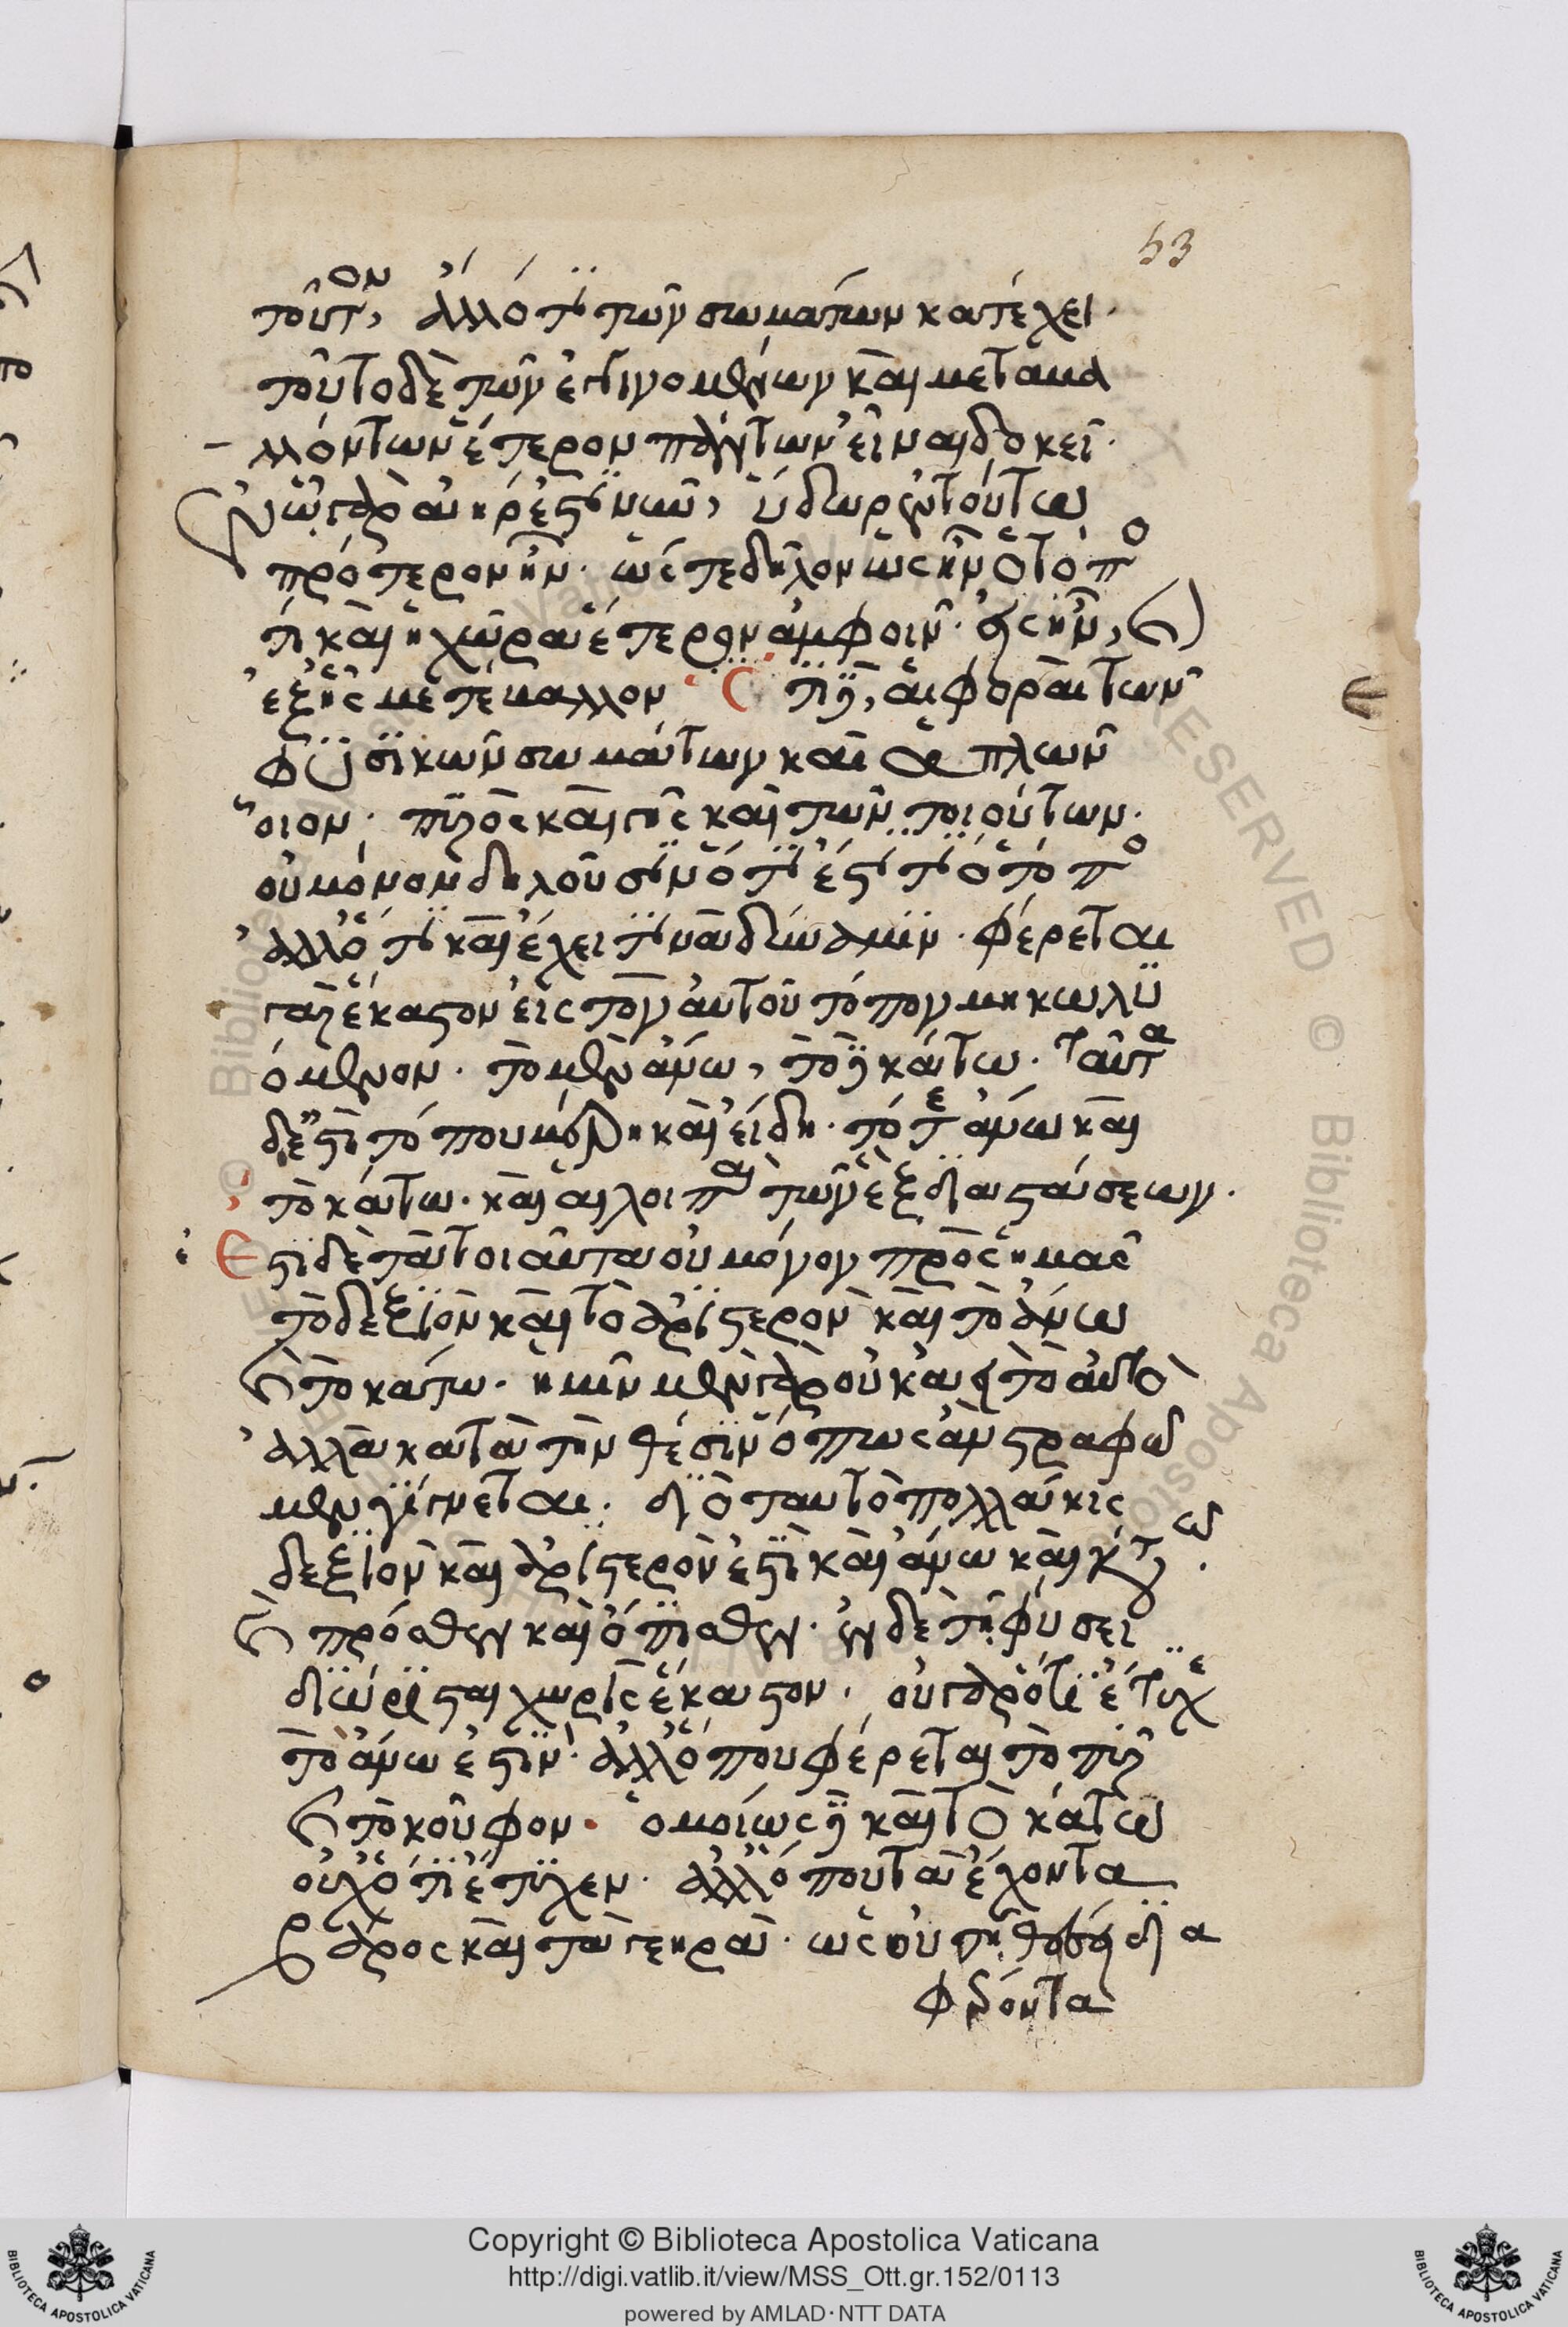 53
τοῦτον, ἄλλό τι τῶν σωμάτων κατέχει·
τοῦτο δὲ τῶν ἐγγινομένων καὶ μεταβα
λλόντων ἕτερον πάντων εἶναι δοκεῖ·
ἐν ᾧ γὰρ ἀήρ ἐστι νῦν, ὕδωρ ἐν τούτω
πρότερον ἦν· ὥστε δῆλον ὡς ἦν ὁ τόπος
τὶ καὶ ἡ χώρα ἕτερον ἀμφοῖν· εἰς ἣν, καὶ
ἐξ ῆς μετέβαλλον ἔτι δὲ, αἱ φοραὶ τῶν
φυσικῶν σωμάτων καὶ ἁπλῶν
οἷον· πυρὸς καὶ γῆς καὶ τῶν τοιούτων·
οὐ μόνον δηλοῦσιν ὅτι ἐστί τι ὁ τόπος
ἀλλ' ὅτι καὶ ἔχει τινὰ δύναμιν· φέρεται
γὰρ ἕκαστον εἰς τὸν αὐτοῦ τόπον μὴ κωλυ
όμενον· τὸ μὲν ἄνω, τὸ δὲ κάτω· ταῦτα
δέ ἐστι τόπου μέρη καὶ εἴδη· τό τε ἄνω καὶ
τὸ κάτω· καὶ αἱ λοιπαὶ τῶν ἓξ διαστάσεων·
Ἔστι δὲ τὰ τοιαῦτα οὐ μόνον πρὸς ἡμᾶς
τὸ δεξιὸν καὶ τὸ ἀριστερὸν καὶ τὸ ἄνω
καὶ τὸ κάτω· ἡμῖν μὲν γὰρ οὐκ ἀεὶ τὸ αὐτὸ
ἀλλὰ κατὰ τὴν θέσιν ὅπως ἂν στραφῶ
μεν γίγνεται· διὸ ταυτὸ πολλάκις
δεξιὸν καὶ ἀριστερόν ἐστι καὶ ἄνω καὶ κάτω·
καὶ πρόσθεν καὶ ὄπισθεν· ἐν δὲ τῇ φύσει
διώρισται χωρὶς ἕκαστον· οὐ γὰρ ὅτι ἔτυχε
τὸ ἄνω ἐστὶν· ἀλλ' ὅπου φέρεται τὸ πῦρ
καὶ τὸ κοῦφον· ὁμοίως δὲ καὶ τὸ κάτω
οὐχ ὅτι ἔτυχεν· ἀλλ' ὅπου τὰ ἔχοντα
βάρος καὶ τὰ γεηρὰ· ὡς οὐ τῇ θέσει δια
φέροντα
Copyright © Biblioteca Apostolica Vaticana
http://digi.vatlib.it/view/MSS_Ott.gr.152/0113
powered by AMLAD · NTT DATA